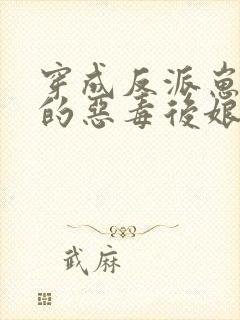 穿成反派崽
的惡毒後娘
武麻